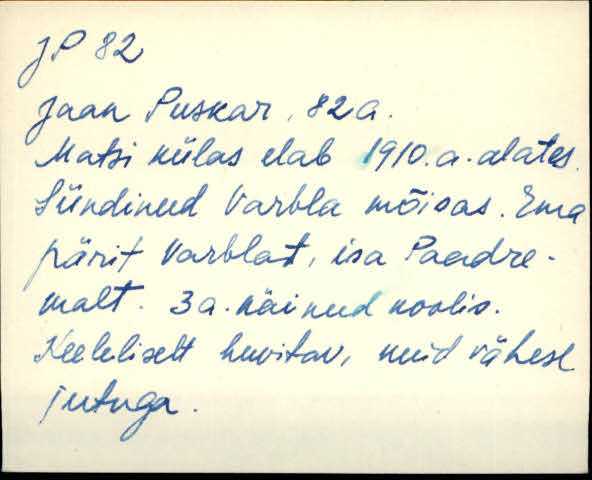 JP 82
Jaan Puskar, 82 a.
Matsi külas elab 1910. a. alates.
Sündinud Varbla mõisas. Ema
pärit Varblast, isa Paadre-
malt. 3 a. käinud koolis.
Keeleliselt huvitav, kuid vähese
jutuga.